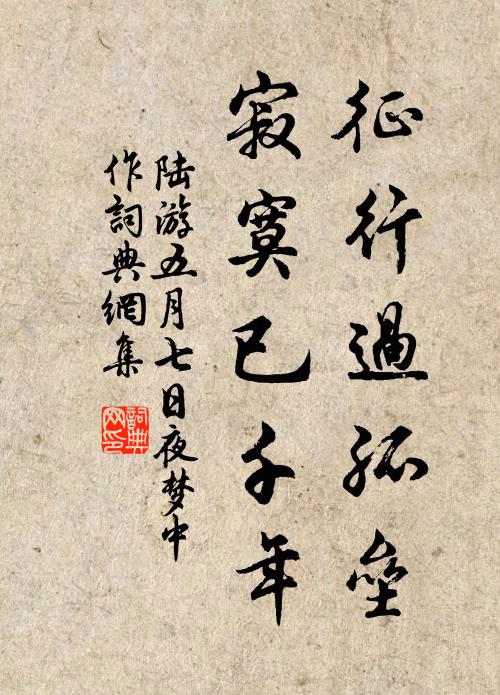 征行過孤壘
寂寞已千年
陆游五月七日夜梦中
作詞典網集
詞典网印